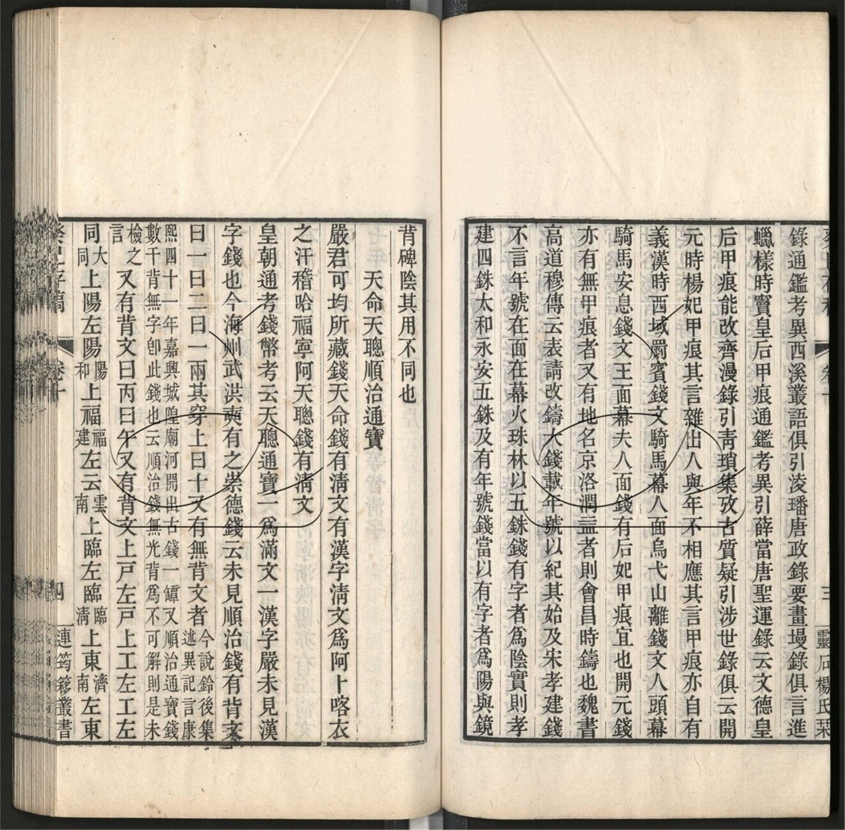 錄通鑑考異西溪叢語俱引淩璠唐政錄要畫墁錄俱言進
蠟樣時竇皇后甲痕通鑑考異引薛當唐聖運錄云文德皇
后甲痕能改齊漫錄引青瑣集攷古質疑引涉世錄俱云開
元時楊妃甲痕其言雜出人與年不相應其言甲痕亦自有
義漢時西域罽賓錢文騎馬幕人面烏弋山離錢文人頭幕
騎馬安息錢文王面幕夫人面錢有后妃甲痕宜也開元錢
亦有無甲痕者又有地名京洛潤諸者則會昌時鑄也魏書
高道穆傳云表請改鑄大錢載年號以紀其始及宋孝建錢
不言年號在面在幕火珠林以五銖錢有字者為陰實則孝
建四銖太和永安五銖及有年號錢當以有字者為陽與鏡
三
靈石楊氏栞
背碑陰其用不同也
天命天聰順治通寶
嚴君可均所藏錢天命錢有清文有漢字清文爲阿卜喀衣
之汗稽哈福寧阿天聰錢有清文
皇朝通考錢幣考云天聰通寶一爲滿文一漢字嚴未見漢
字錢也今海州武洪奭有之崇德錢云未見順治錢有背文
曰一曰二曰一兩其穿上曰十又有無背文者
今說鈴後集
述異記言康
熙四十一年嘉興城隍廟河開出古錢一罈又順治通寶錢
數千背無字卽此錢也云順治錢無光背爲不可解則是未
檢之
言
又有背文曰丙曰午又有背文上戸左戸上工左工左
同大
同
上陽左陽
陽
和
上福
福
建
左云
雲
南
上臨左臨
臨
清
上東
濟
南
左東
癸巳存稿
卷十
四
連筠簃叢書